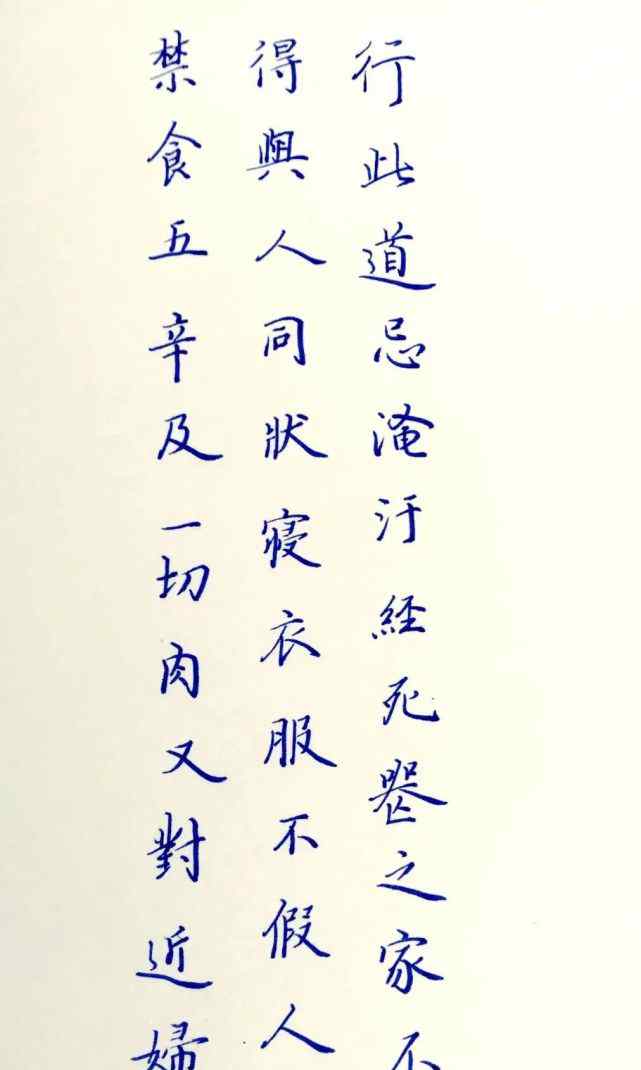 行此道忌淹汙經死喪之家不
得與人同牀寢衣服不假人
禁食五辛及一切肉又對近婦